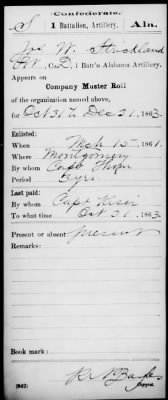 Confederate.
S 1 Battalion, Artillery, Ala.
Jas. W. Strickland
Pvt, Co. D, 1 Batt'n Alabama Artillery.
Appears on
Company Muster Roll
of the organization named above,
for Oct 31 to Dec 31, 1863.
Enlisted:
When Mch 15, 1861.
Where Montgomery
By whom Capt
Period yrs
Last paid:
By whom Capt
To what time Oct 31, 1863
Present or absent present
Remarks:
Book mark:
(642) Copyist.